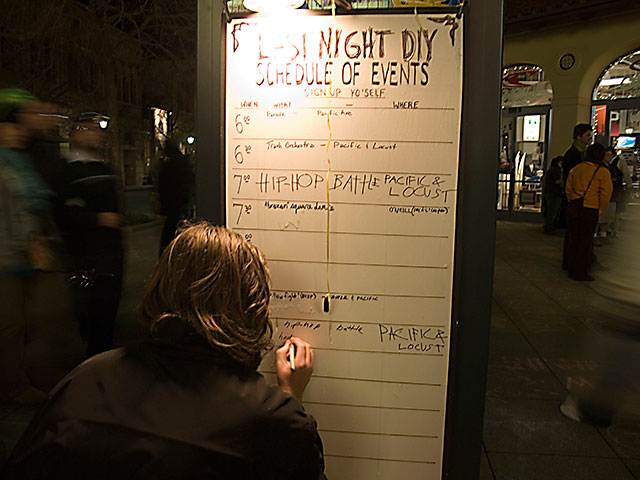 LAST NIGHT DIY
SCHEDULE OF EVENTS
SIGN UP YO'SELF
WHEN WHAT — WHERE
6:00 Parade — Pacific Ave
6:30 Trash Orchestra — Pacific & Locust
7:00 HIP-HOP BATTLE PACIFIC & LOCUST
7:30 square dance O'NEILL
& Pacific
hip-hop battle PACIFIC & LOCUST